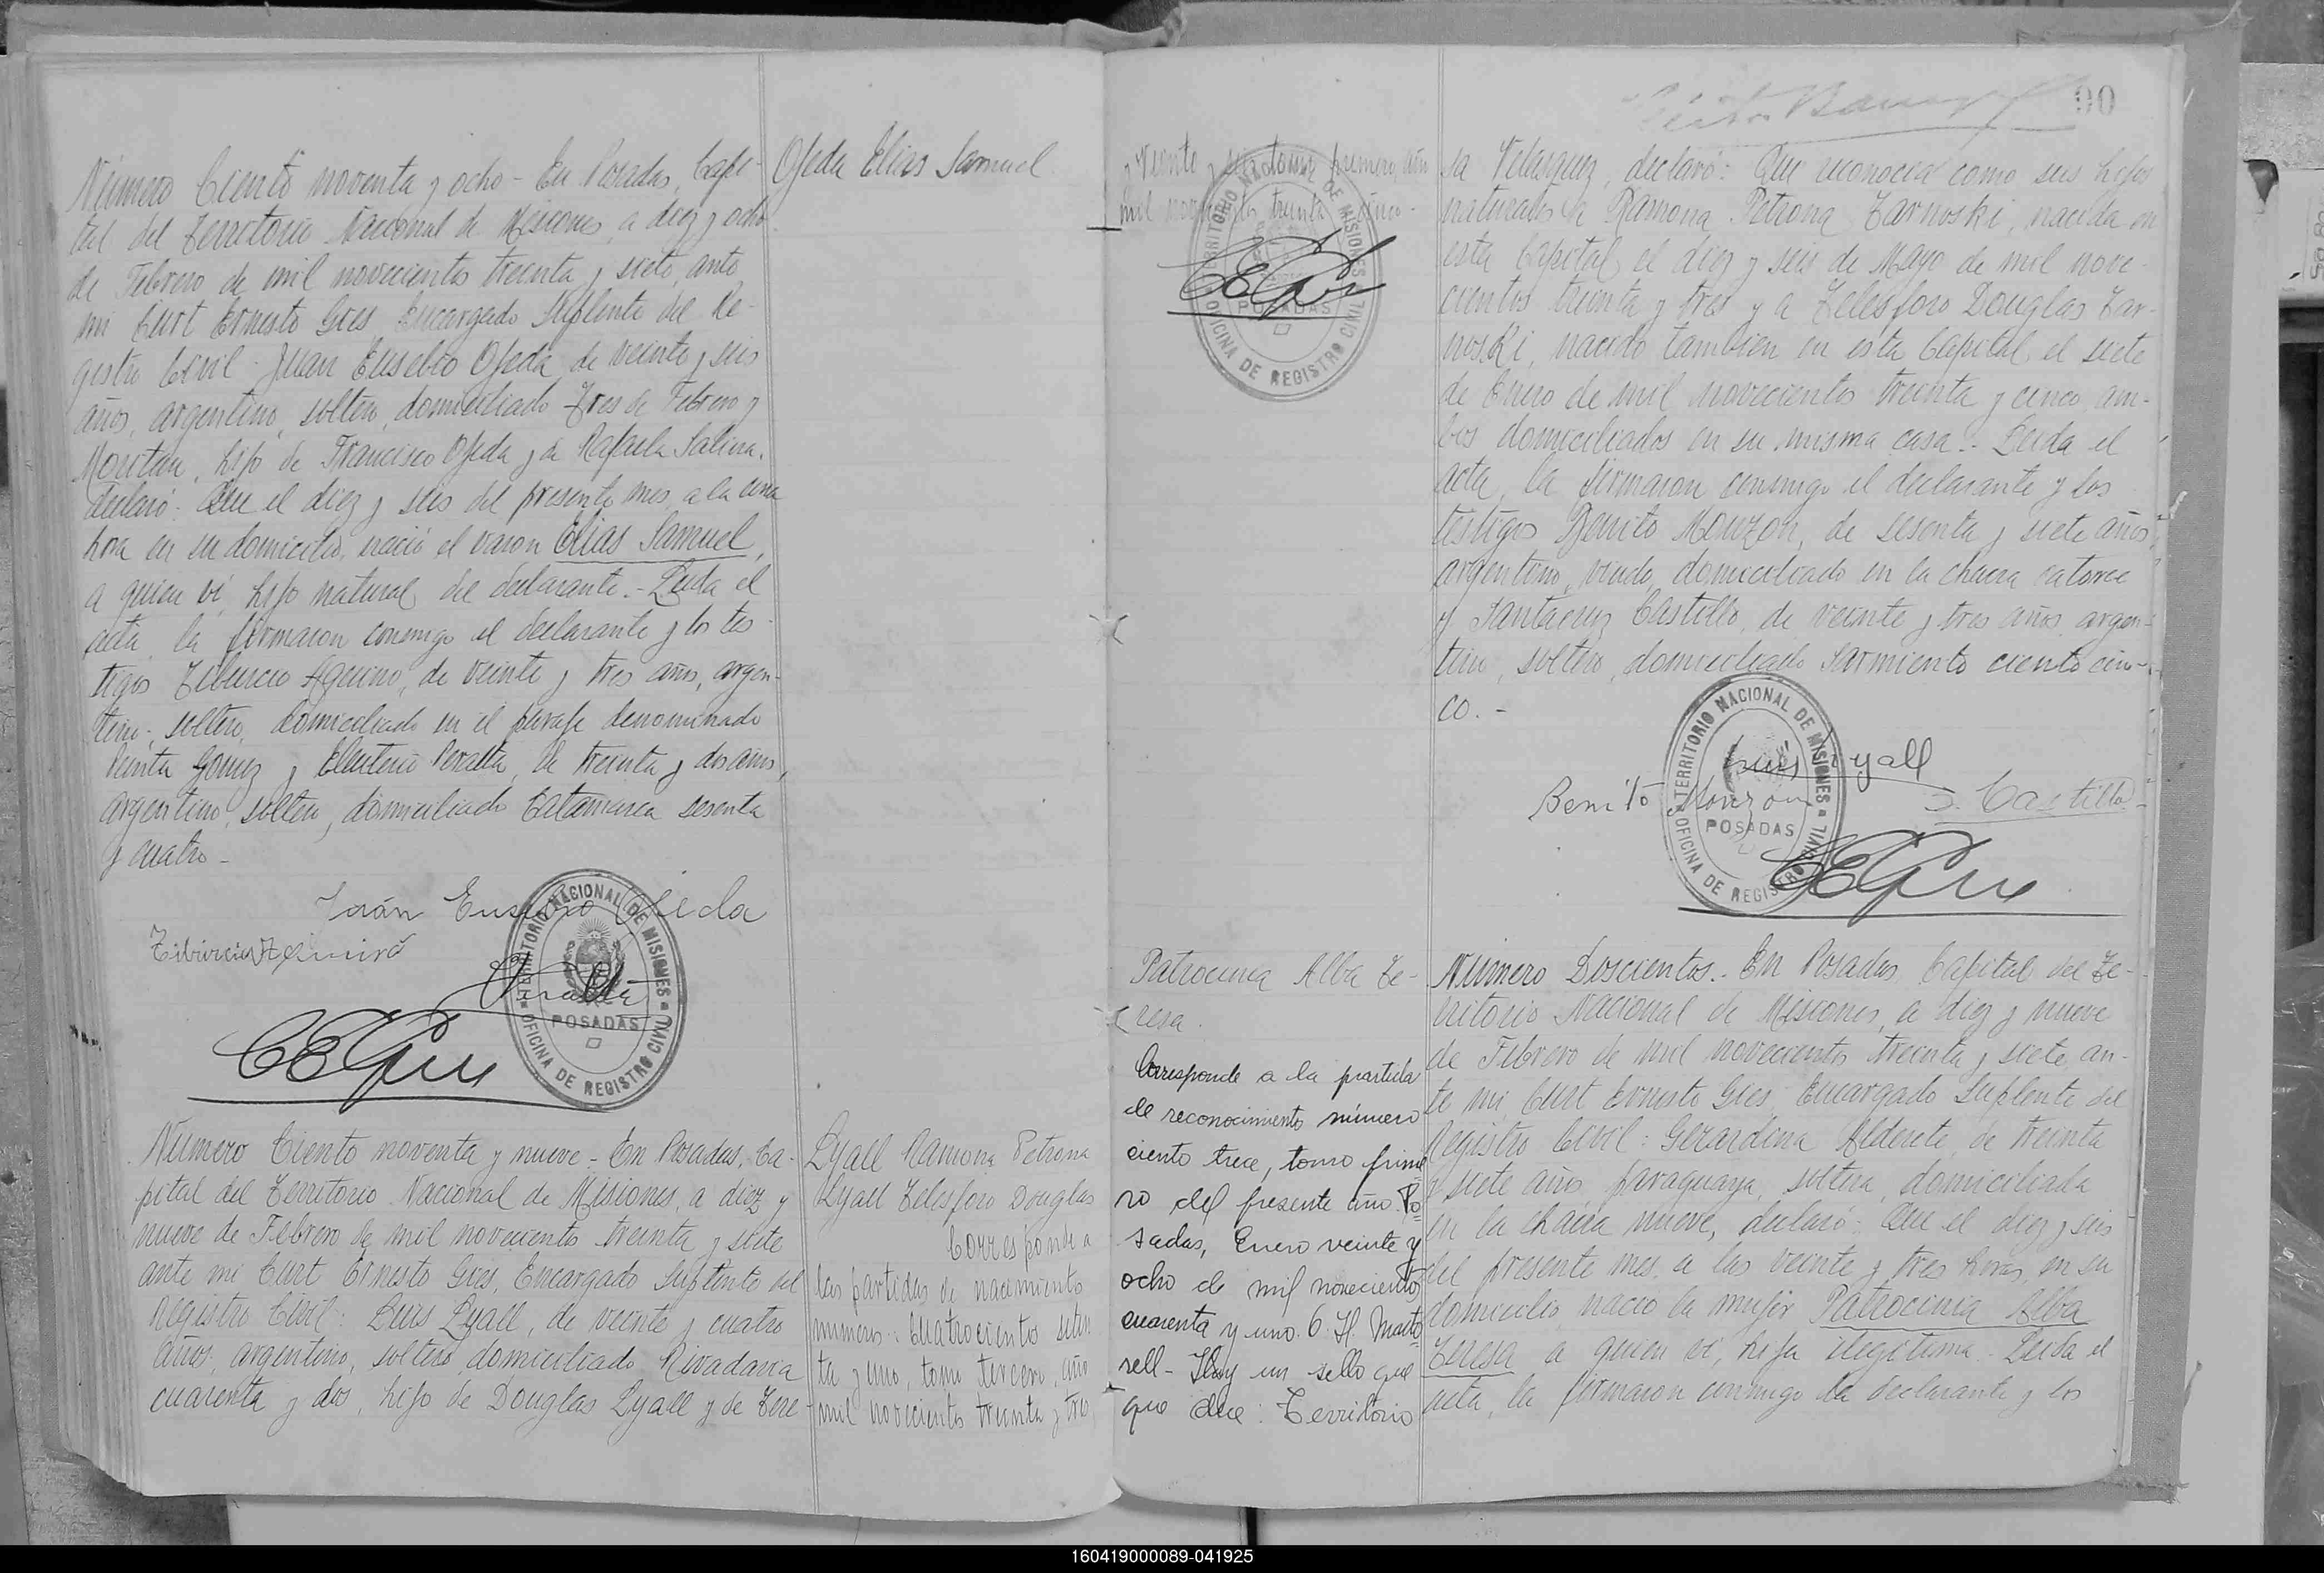 Número Ciento noventa y ocho - En Posadas, Capi-
tal del Territorio Nacional de Misiones, a diez y ocho
de Febrero de mil novecientos treinta y siete, ante
mi Curt Ernesto Gres, Encargado Suplente del Re-
gistro Civil: Juan Eusebio Ojeda, de veinte y seis
años, argentino, soltero, domiciliado Tres de Febrero y
hijo de Francisco Ojeda y de Rafaela Salina,
declaró: Que el diez y seis del presente mes, a la una
hora en su domicilio, nació el varon Elias Samuel,
a quien ví, hijo natural del declarante.- Leida el
acta, la firmaron conmigo el declarante y los tes-
tigos Tiburcio Aquino, de veinte y tres años, argen-
tino, soltero, domiciliado en el paraje denominado
Quinta Gomez y Eleuterio Peralta, de treinta y dos años,
argentino, soltero, domiciliado Catamarca sesenta
y cuatro -
Juán Eusebio Ojeda
Peralta
TERRITORIO NACIONAL DE MISIONES
POSADAS
OFICINA DE REGISTRO CIVIL
CEGres
Ojeda Elias Samuel
Número Ciento noventa y nueve - En Posadas, Ca-
pital del Territorio Nacional de Misiones, a diez y
nueve de Febrero de mil novecientos treinta y siete
ante mi Curt Ernesto Gres, Encargado Suplente del
Registro Civil: Luis Lyall, de veinte y cuatro
años, argentino, soltero, domiciliado Rivadavia
cuarenta y dos, hijo de Douglas Lyall y de Tere-
Lyall Ramona Petrona
Lyall Telesforo Douglas
Corresponde a
las partidas de nacimiento
números: cuatrocientos seten
ta y uno, tomo tercero, año
mil novecientos treinta y tres,
y veinte y seis, tomo primero, año
mil novecientos treinta y cinco.-
TERRITORIO NACIONAL DE MISIONES
POSADAS
OFICINA DE REGISTRO CIVIL
CEGres
90
sa Velasquez, declaró: Que reconocia como sus hijos
naturales a Ramona Petrona Zarnoski, nacida en
esta Capital, el diez y seis de Mayo de mil nove-
cientos treinta y tres y a Telesforo Douglas Zar-
noski, nacido tambien en esta Capital, el siete
de Enero de mil novecientos treinta y cinco, am-
bos domiciliados en su misma casa.- Leida el
acta, la firmaron conmigo el declarante y los
testigos Benito Monzon, de sesenta y siete años,
argentino, viudo, domiciliado en la chacra catorce
y Santacruz Castillo, de veinte y tres años, argen-
tino, soltero, domiciliado Sarmiento ciento cin-
co.-
Luis Lyall
Benito Monzon
S. Castillo
TERRITORIO NACIONAL DE MISIONES
POSADAS
OFICINA DE REGISTRO CIVIL
CEGres
Patrocinia Alba Te-
resa.
Corresponde a la partida
de reconocimiento número
ciento trece, tomo prime
ro del presente año. Po-
sadas, Enero veinte y
ocho de mil novecientos
cuarenta y uno. C. H. Marto
rell - Hay un sello que
que dice: Territorio
Número Doscientos.- En Posadas, Capital del Te-
rritorio Nacional de Misiones, a diez y nueve
de Febrero de mil novecientos treinta y siete, an-
te mi Curt Ernesto Gres, Encargado Suplente del
Registro Civil: Gerardina Alderete, de treinta
y siete años, paraguaya, soltera, domiciliada
en la chacra nueve, declaró: Que el diez y seis
del presente mes, a las veinte y tres horas, en su
domicilio, nació la mujer Patrocinia Alba
Teresa a quien ví, hija ilegítima.- Leida el
acta, la firmaron conmigo la declarante y los
160419000089-041925